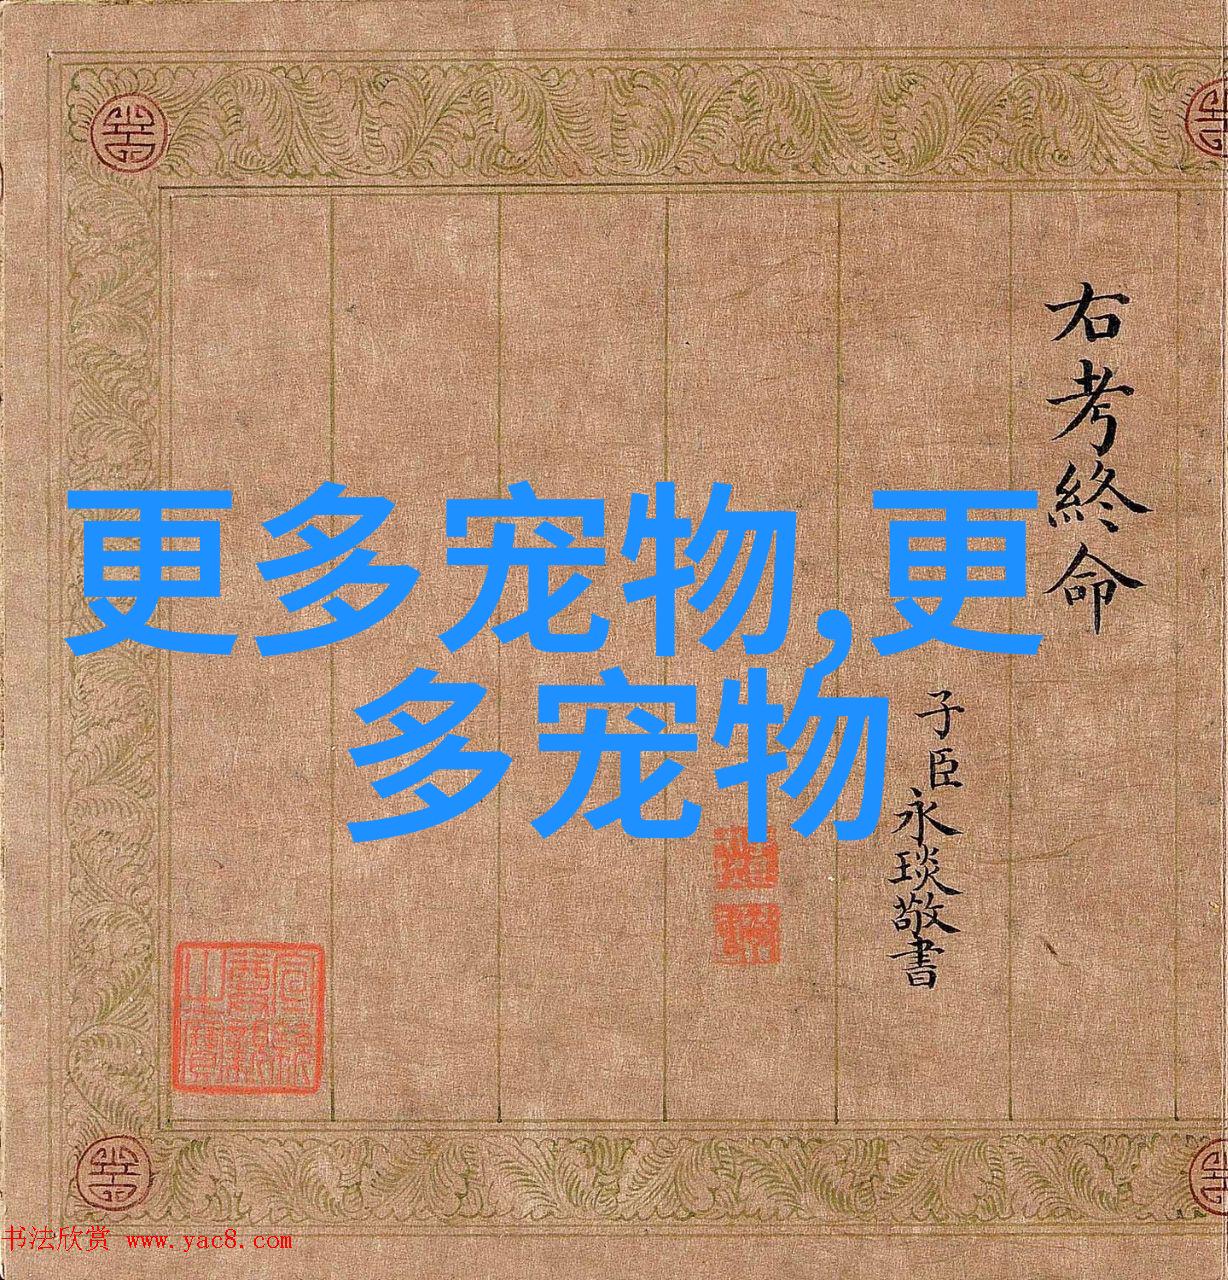 更多宠物,更
多宠物
右考終命
子臣永琰敬書
宣統御覽之寶
书法欣赏 www.yac8.com